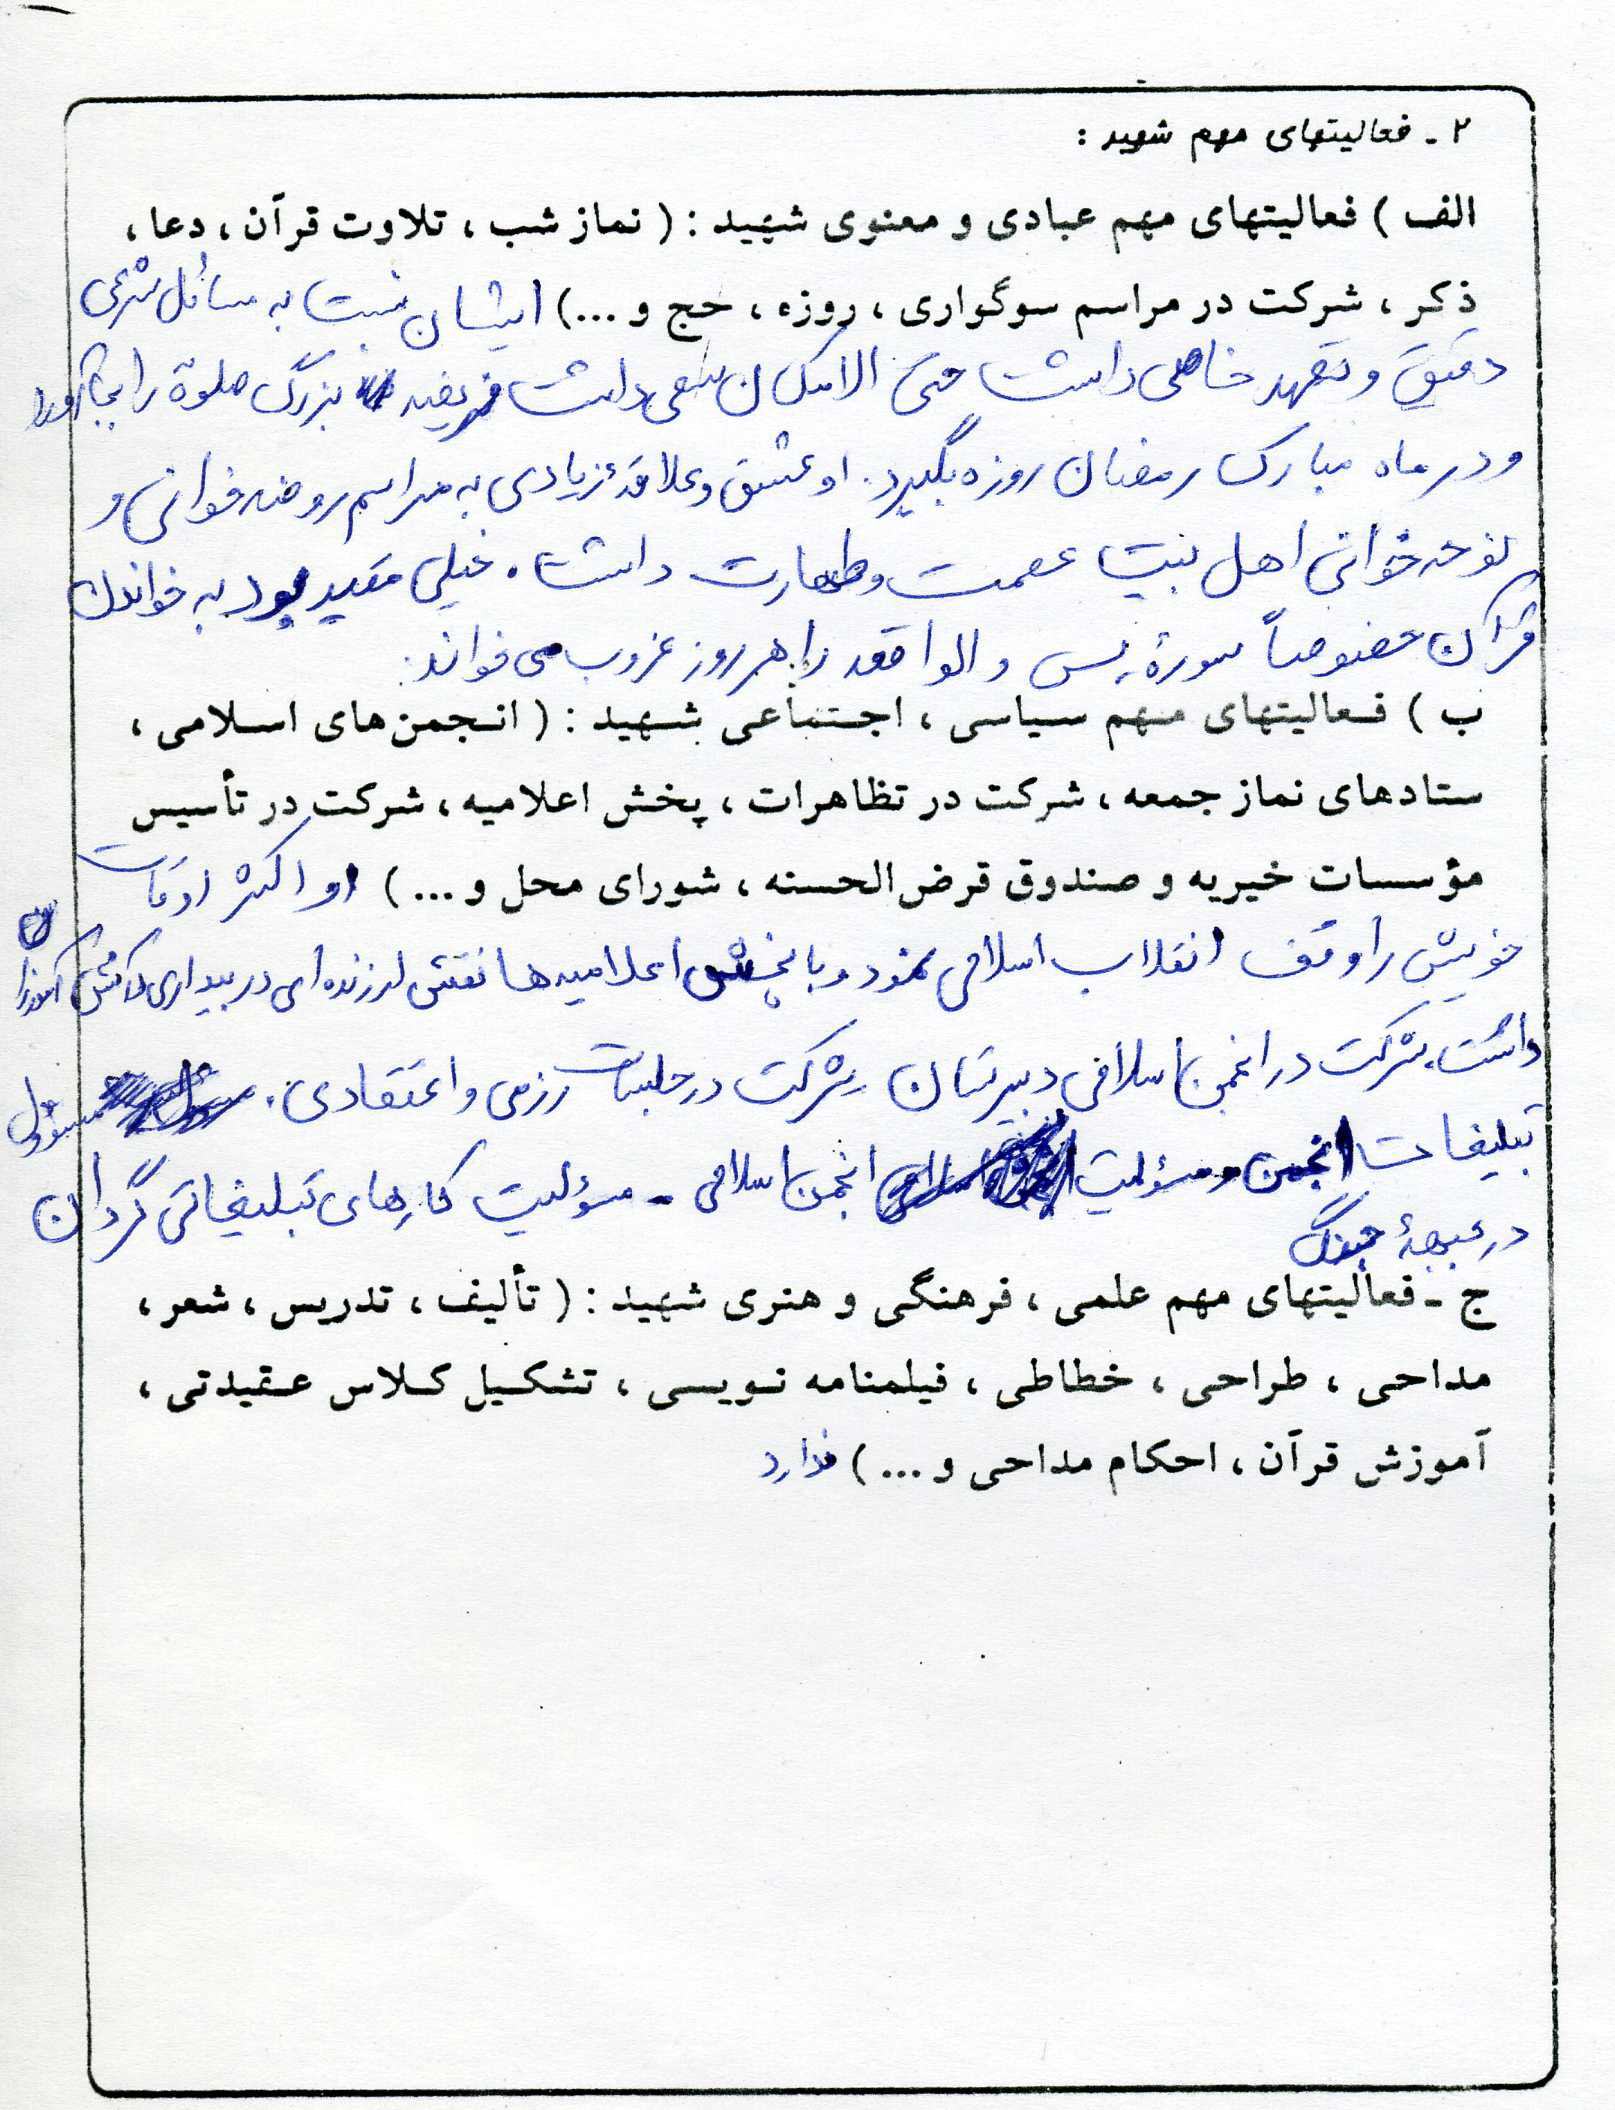 ۲ - فعالیتهای مهم شهید :
الف ) فعالیتهای مهم عبادی و معنوی شهید : ( نماز شب ، تلاوت قرآن ، دعا ،
ذکر ، شرکت در مراسم سوگواری ، روزه ، حج و ... ) ایشان نسبت به مسائل شرعی
دقیق و تعهد خاصی داشت حتی الامکان سعی داشت فریضه بزرگ صلوة را بجا آورد
و در ماه مبارک رمضان روزه بگیرد . او عشق و علاقۀ زیادی به مراسم روضه خوانی و
نوحه خوانی اهل بیت عصمت و طهارت داشت . خیلی مقید بود به خواندن
قرآن خصوصاً سورۀ یس و الواقعه را هر روز غروب می خواند .
ب ) فعالیتهای مهم سیاسی ، اجتماعی شهید : ( انجمن های اسلامی ،
ستادهای نماز جمعه ، شرکت در تظاهرات ، پخش اعلامیه ، شرکت در تأسیس
مؤسسات خیریه و صندوق قرض الحسنه ، شورای محل و ... ) او اکثر اوقات
خویش را وقف انقلاب اسلامی نمود و با پخش اعلامیه ها نقش ارزنده ای در بیداری دانش آموزان
داشت . شرکت در انجمن اسلامی دبیرستان شرکت در جلسات رزمی و اعتقادی . مسؤول
تبلیغات انجمن و مسؤلیت انجمن اسلامی - مسؤلیت کارهای تبلیغاتی گردان
در جبهۀ جنگ
ج - فعالیتهای مهم علمی ، فرهنگی و هنری شهید : ( تألیف ، تدریس ، شعر ،
مداحی ، طراحی ، خطاطی ، فیلمنامه نویسی ، تشکیل کلاس عقیدتی ،
آموزش قرآن ، احکام مداحی و ... ) ندارد